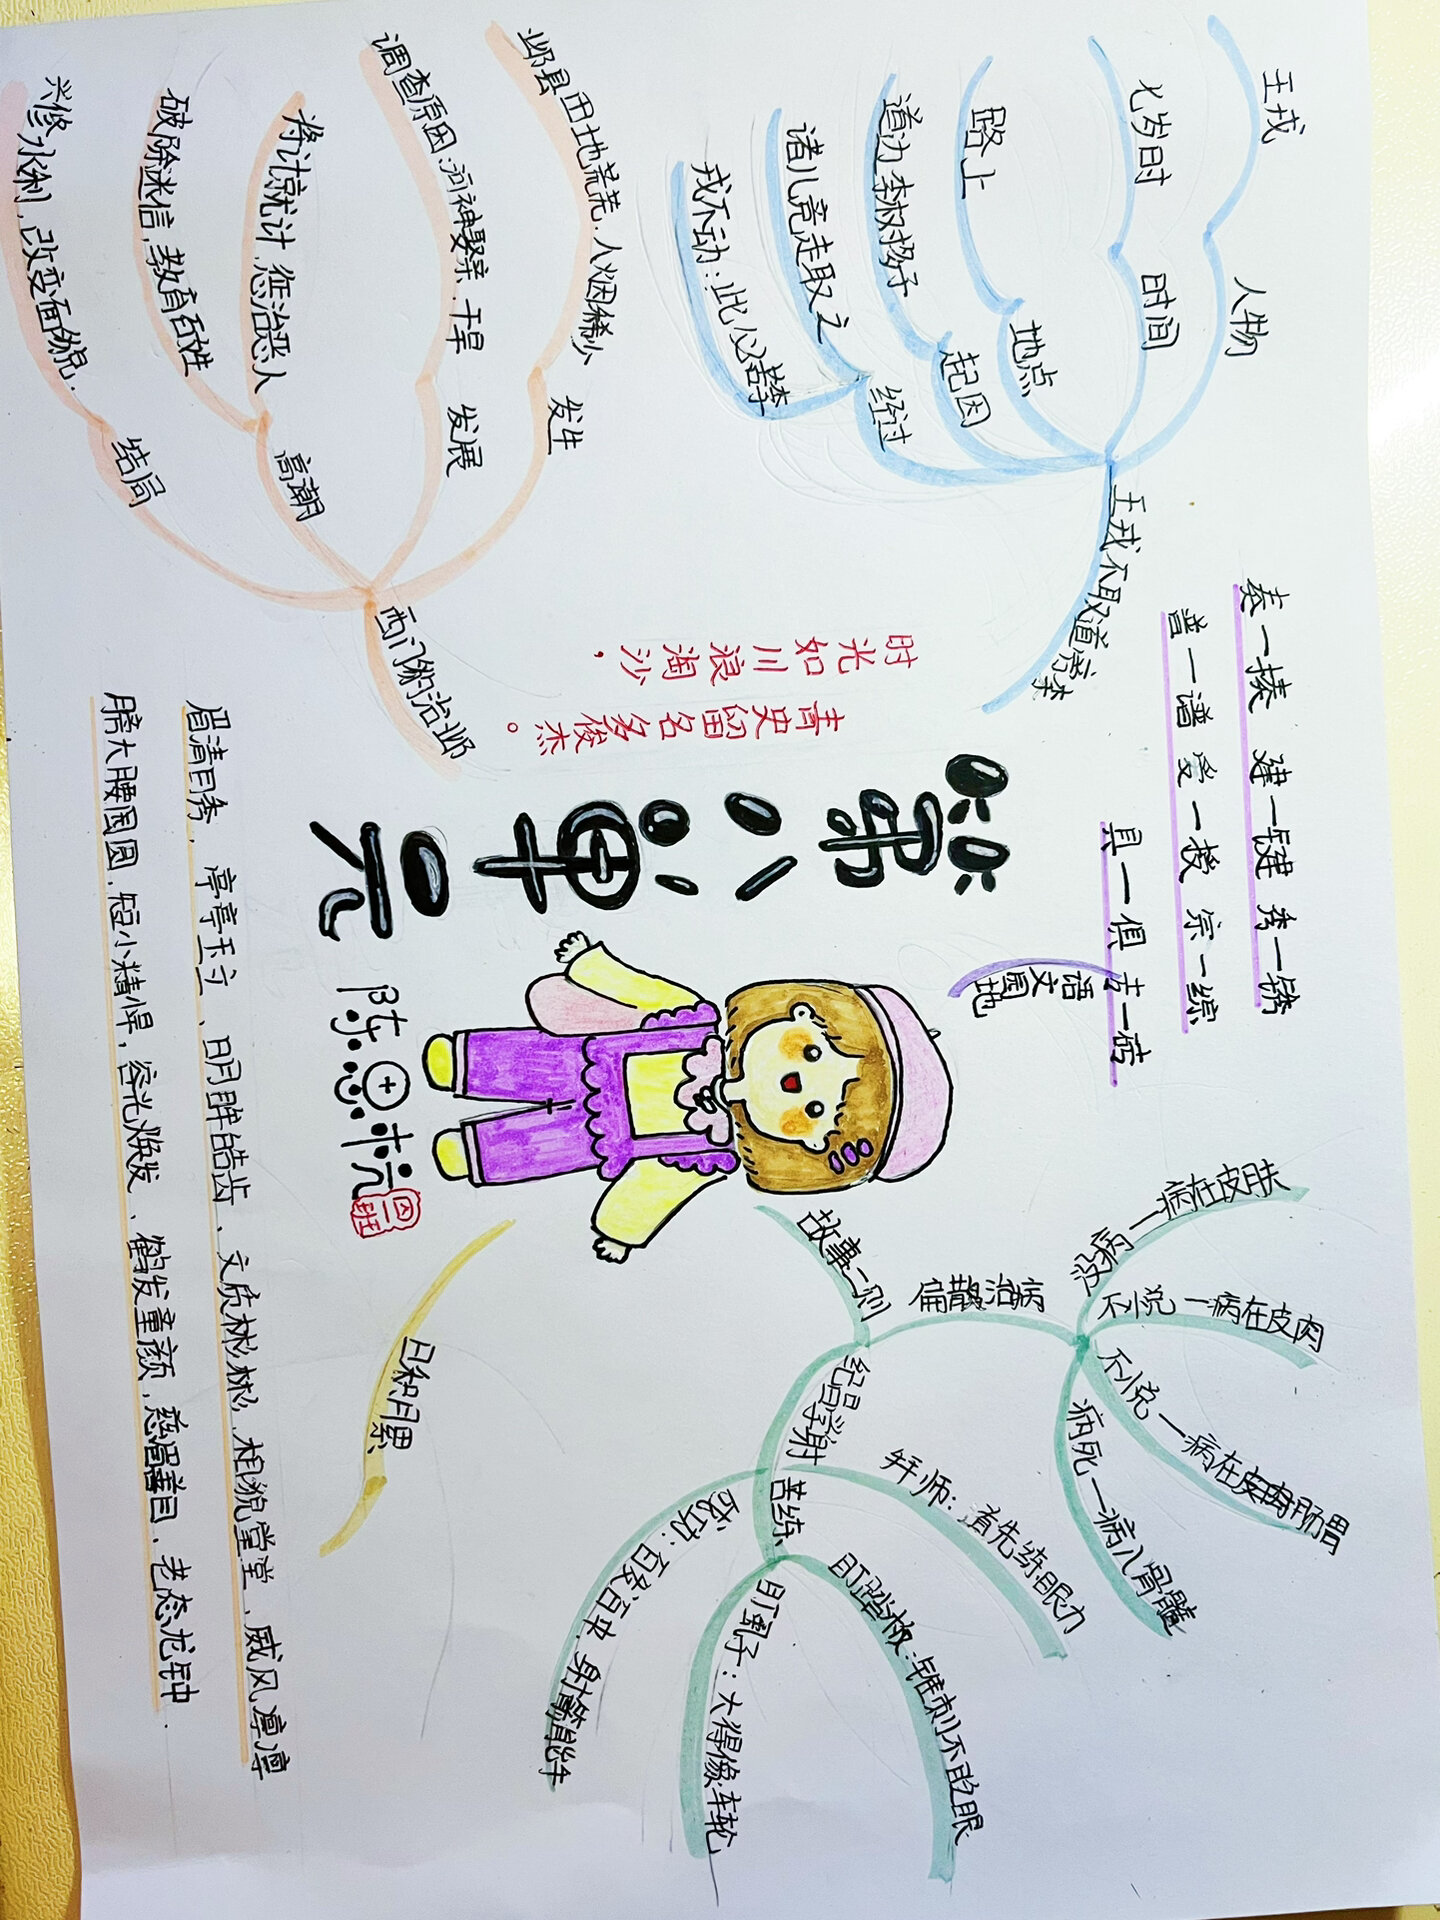 第八单元
时光如川浪淘沙，
青史留名多俊杰。
王戎不取道旁李
人物
王戎
时间
七岁时
地点
路上
起因
道边李树多子
经过
诸儿竞走取之
戎不动：此必苦李
西门豹治邺
发生
邺县田地荒芜，人烟稀少
发展
调查原因：河神娶亲，干旱
高潮
将计就计，惩治恶人
破除迷信，教育百姓
结局
兴修水利，改变面貌.
语文园地
奏一揍 建一健 秀一锈
普一谱 受一授 宗一综
具一俱 苦一
故事二则
扁散治病
没病一病在皮肤
不悦一病在皮肉
不悦一病在皮肉肠胃
病死一病入骨髓
纪昌学射
拜师：首先练眼力
苦练
盯踏板：锥刺不眨眼
盯虱子：大得像车轮
成功：百发百中，射箭能手
日积月累
眉清目秀、亭亭玉立、明眸皓齿、文质彬彬、相貌堂堂、威风凛凛
膀大腰圆、短小精悍、容光焕发、鹤发童颜、慈眉善目、老态龙钟.